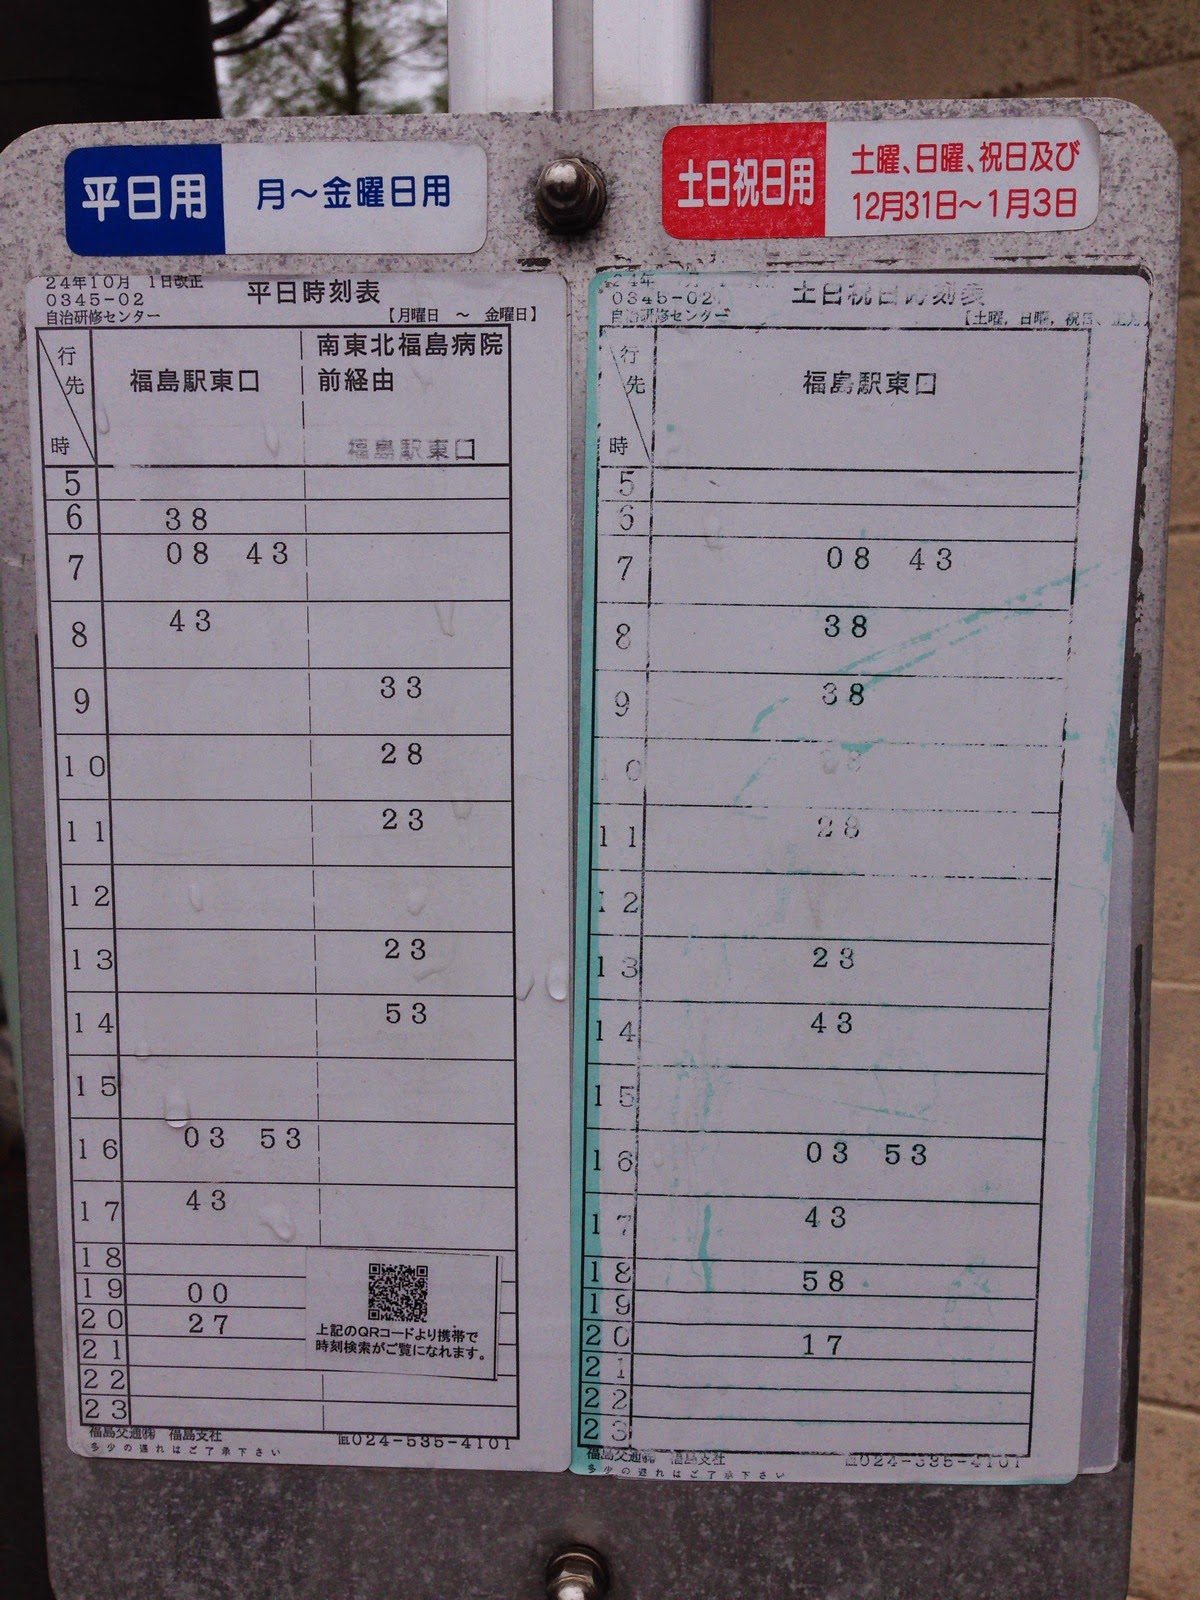 平日用 月～金曜日用
土日祝日用 土曜、日曜、祝日及び
12月31日～1月3日
24年10月 1日改正
0345-02 平日時刻表
自治研修センター 【月曜日 ～ 金曜日】
行先 時
福島駅東口
南東北福島病院
前経由
福島駅東口
5
6 38
7 08 43
8 43
9 33
10 28
11 23
12
13 23
14 53
15
16 03 53
17 43
18
19 00
20 27
21
22
23
上記のQRコードより携帯で
時刻検索がご覧になれます。
福島交通㈱ 福島支社 ℡024-535-4101
多少の遅れはご了承下さい
24年
0345-02 土日祝日時刻表
自治研修センター 【土曜，日曜，祝日、
行先 時
福島駅東口
5
6
7 08 43
8 38
9 38
10
11 28
12
13 23
14 43
15
16 03 53
17 43
18 58
19
20 17
21
22
23
福島交通㈱ 福島支社 ℡024-535-4101
多少の遅れはご了承下さい